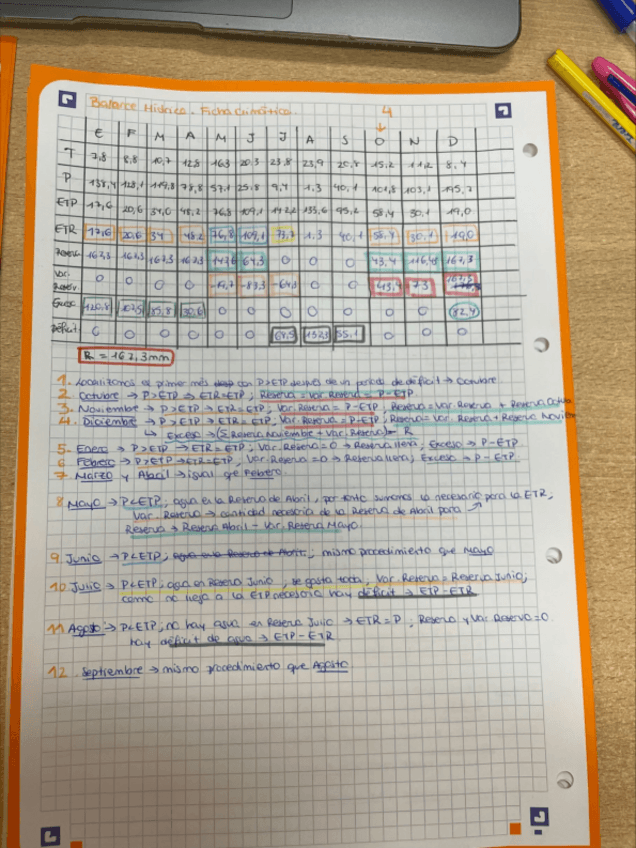 Balance Hídrico. Ficha Climática.
4
E F M A M J J A S O N D
T 7,8 8,8 10,7 12,8 16,3 20,3 23,8 23,9 20,8 15,2 11,2 8,4
P 138,4 128,1 119,8 78,8 57,1 25,8 9,4 1,3 40,1 101,8 103,1 195,3
ETP 17,6 20,6 34,0 48,2 76,8 109,1 142,2 133,6 95,2 58,4 30,1 19,0
ETR 17,6 20,6 34 48,2 76,8 109,1 73,7 1,3 40,1 58,4 30,1 19,0
Reserva 162,3 162,3 162,3 162,3 64,3 0 0 0 43,4 116,4 162,3
Var. Reserv 0 0 0 0 -19,7 -83,3 -64,3 0 0 43,4 73
Exceso 120,8 107,5 85,8 30,6 0 0 0 0 0 0 0 82,4
Déficit 0 0 0 0 0 0 68,5 55,1 0 0 0
R = 162,3mm
1. Localizamos el primer mes con P>ETP después de un periodo de déficit → Octubre
2. Octubre → P>ETP → ETR=ETP; Reserva = Var. Reserva = P-ETP
3. Noviembre → P>ETP → ETR=ETP; Var. Reserva = P-ETP, Reserva = Var. Reserva + Reserva Octub
4. Diciembre → P>ETP → ETR=ETP, Var. Reserva = P-ETP; Reserva = Var. Reserva + Reserva Noviem
↳ Exceso → (Σ Reserva Noviembre + Var. Reserva) - R
5. Enero → P>ETP → ETR=ETP; Var. Reserva = 0 → Reserva llena; Exceso → P-ETP
6. Febrero → P>ETP → ETR=ETP, Var. Reserva = 0 → Reserva llena, Exceso → P-ETP
7. Marzo y Abril → igual que Febrero.
8. Mayo → P<ETP, agua en la Reserva de Abril, por tanto sumamos la necesario para la ETR,
Var. Reserva → cantidad necesaria de la Reserva de Abril para
Reserva → Reserva Abril - Var. Reserva Mayo.
9. Junio → P<ETP, mismo procedimiento que Mayo
10. Julio → P<ETP, agua en Reserva Junio, se gasta toda, Var. Reserva = Reserva Junio,
como no llega a la ETP necesaria hay déficit → ETP-ETR
11. Agosto → P<ETP; no hay agua en Reserva Julio → ETR=P; Reserva y Var. Reserva = 0
hay déficit de agua → ETP-ETR
12. Septiembre → mismo procedimiento que Agosto